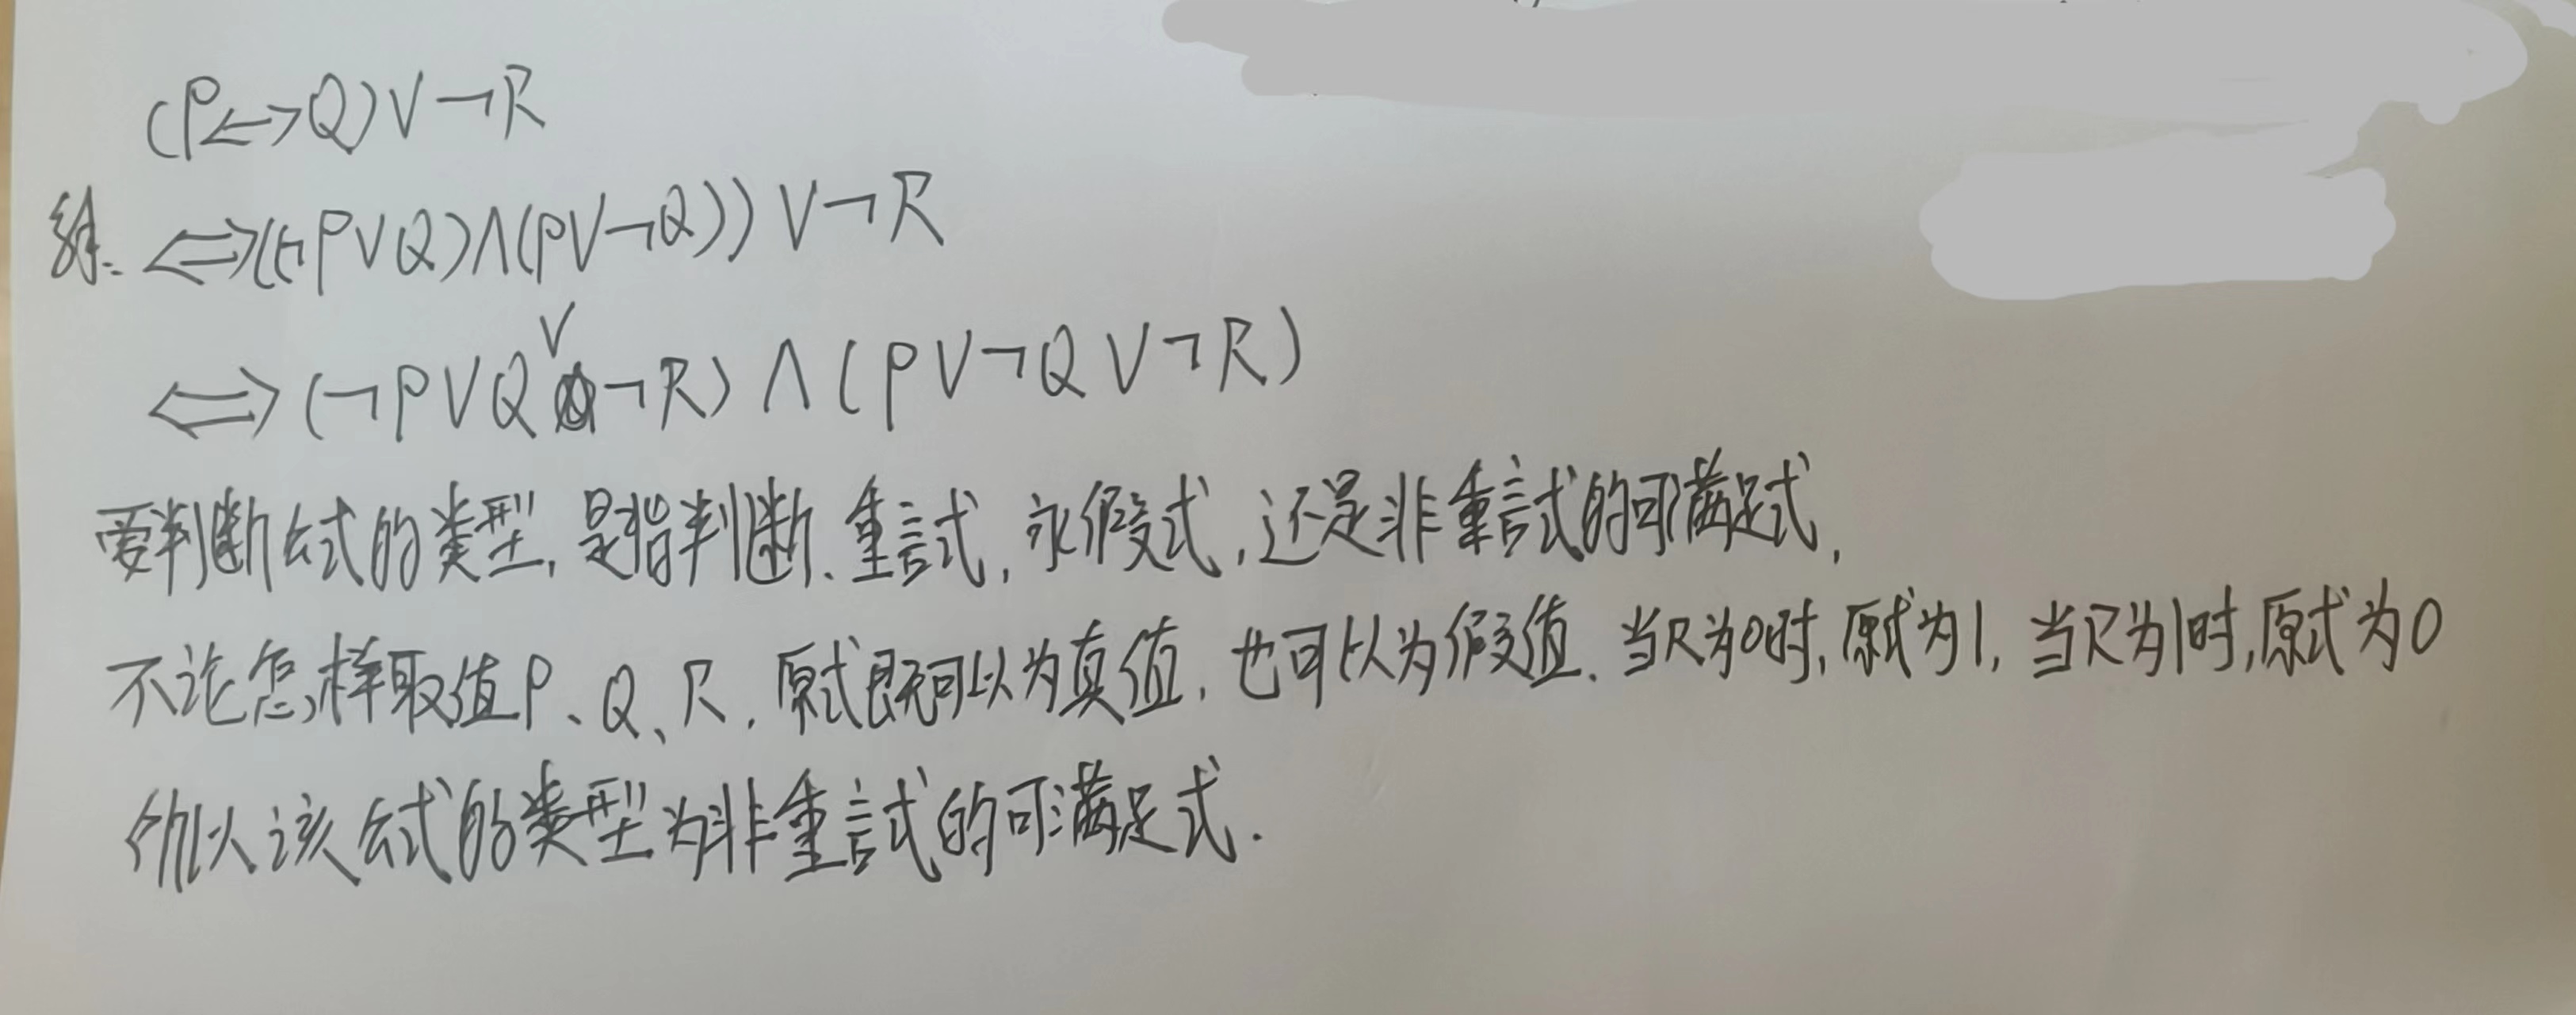 (P↔Q)∨¬R
解: ⇔((¬P∨Q)∧(P∨¬Q))∨¬R
⇔(¬P∨Q∨¬R)∧(P∨¬Q∨¬R)
要判断公式的类型,是指判断、重言式,永假式,还是非重言式的可满足式,
不论怎样取值P、Q、R,原式既可以为真值,也可以为假值.当R为0时,原式为1,当R为1时,原式为0
所以该公式的类型为非重言式的可满足式.